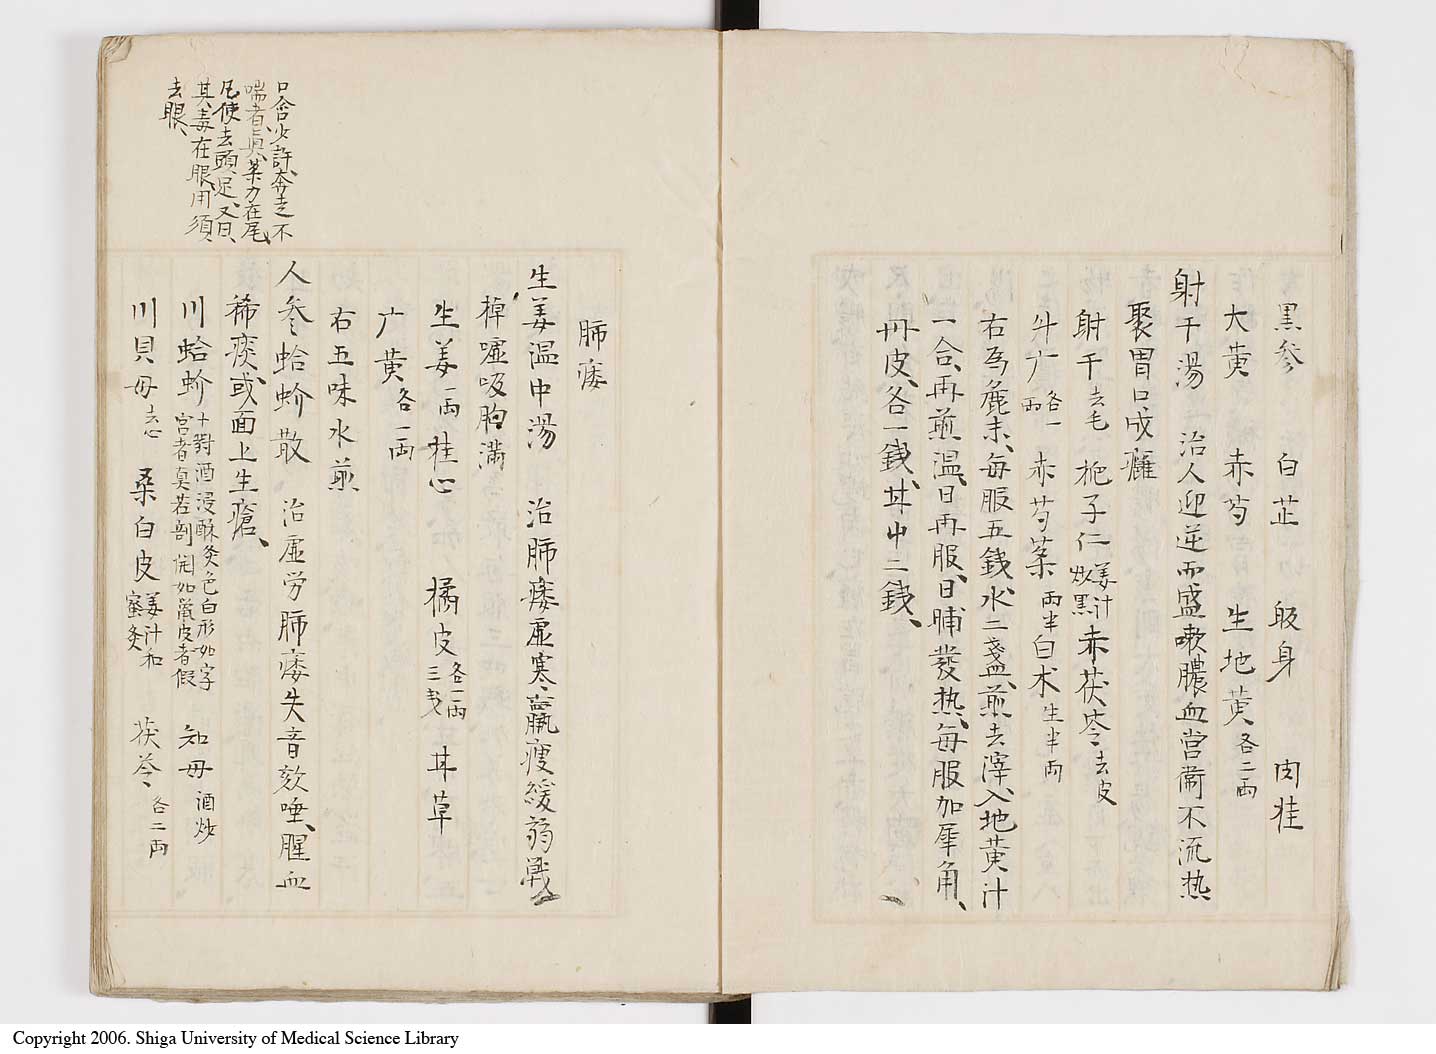 黒参 白芷 皈身 肉桂
大黄 赤芍 生地黄各二両
射干湯 治人迎逆而盛嗽膿血営衛不流热
聚胃口成癰
射干去毛 栀子仁姜汁炒黒 赤茯苓去皮
升广各一両 赤芍薬両半 白术生半両
右为麁末、每服五銭、水二盞、煎去滓、入地黄汁
一合、再煎温、日再服、日晡發热、每服加犀角、
丹皮、各一銭、甘中二銭、
肺痿
生姜温中湯 治肺痿虚寒、羸瘦緩弱戦
掉嘘吸胸满
生姜一両 桂心 橘皮各一両三戋 甘草
广黄各一両
右五味水煎
人参蛤蚧散 治虚労肺痿失音欬唾、腥血
稀痰或面上生瘡、
川蛤蚧十對酒浸酥灸色白形如字宮者真若剖開如鼠皮者假 知母酒炒
川貝母去心 桑白皮姜汁和蜜灸 茯苓各二両
口含少許奔走不
喘者真、薬力在尾
凡使去頭足、又曰、
其毒在眼、用須
去眼、
Copyright 2006. Shiga University of Medical Science Library